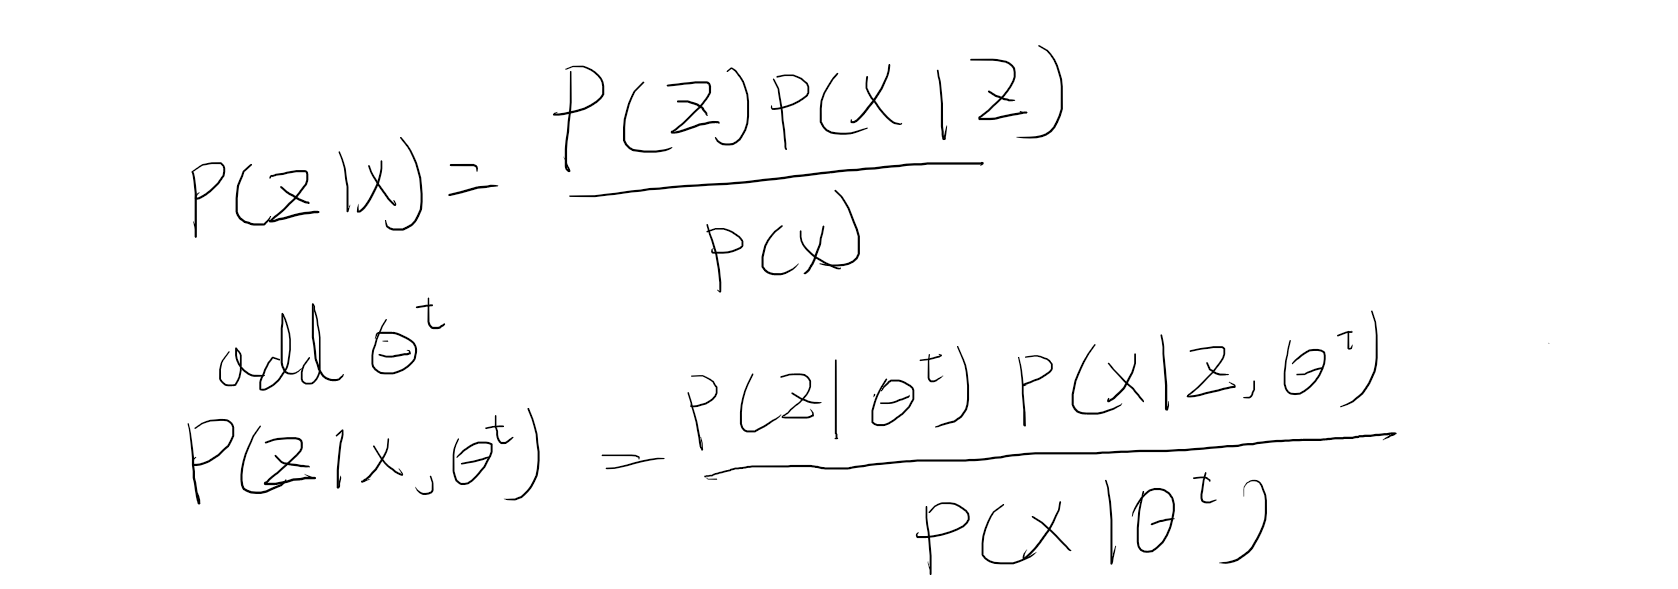 P(Z|X) = P(Z)P(X|Z) / P(X)
add θ^t
P(Z|X,θ^t) = P(Z|θ^t) P(X|Z,θ^t) / P(X|θ^t)